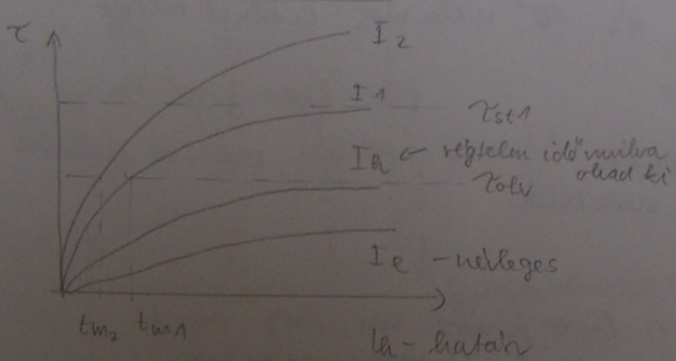 τ
I2
I1
τst1
Ih ← végtelen idő múlva
olvad ki
τolv
Ie - névleges
tm2 tm1
Ih - határ